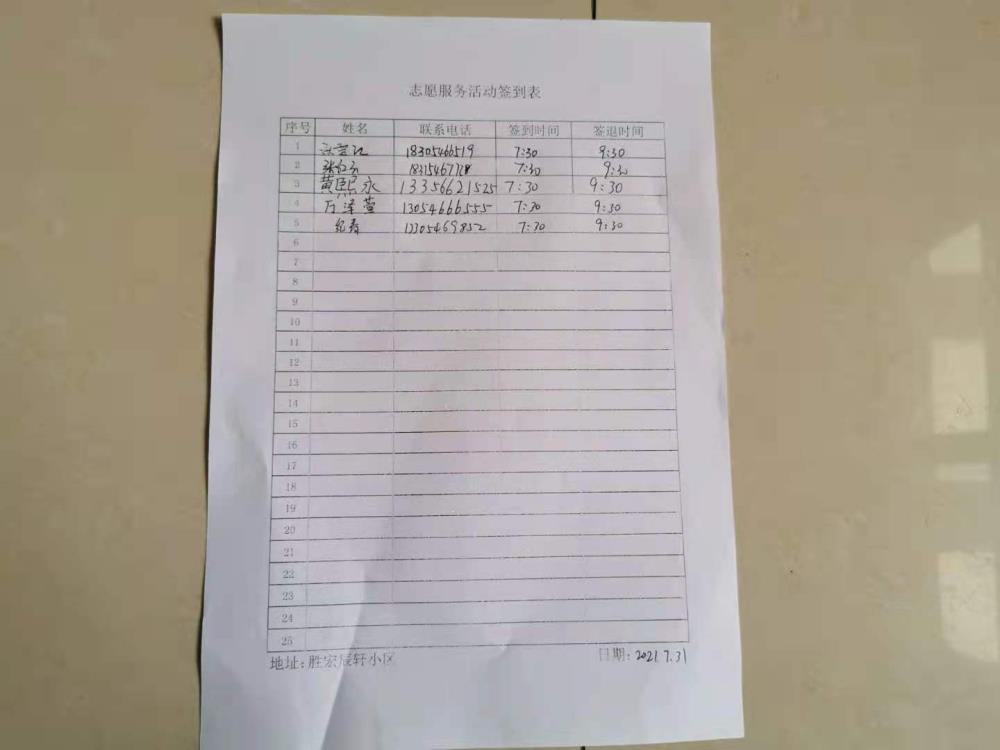 志愿服务活动签到表
序号 姓名 联系电话 签到时间 签退时间
1 18305466519 7:30 9:30
2 7:30 9:30
3 黄熙永 13356621525 7:30 9:30
4 万泽萱 13054666555 7:30 9:30
5 纪春 13305469852 7:30 9:30
6
7
8
9
10
11
12
13
14
15
16
17
18
19
20
21
22
23
24
25
地址:胜宏宸轩小区 日期:2021.7.31